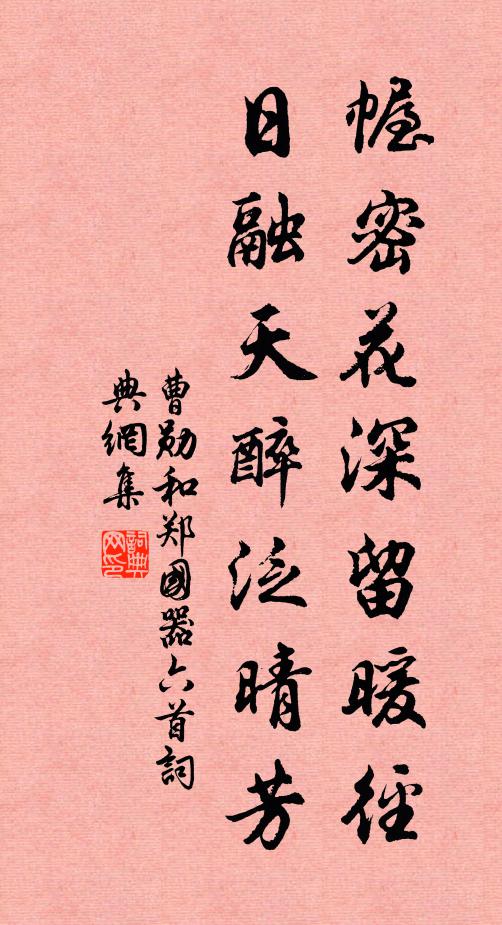 幄密花深留暖径
日融天醉泛晴芳
曹勋和郑國器六首詞
典網集
詞典
网印